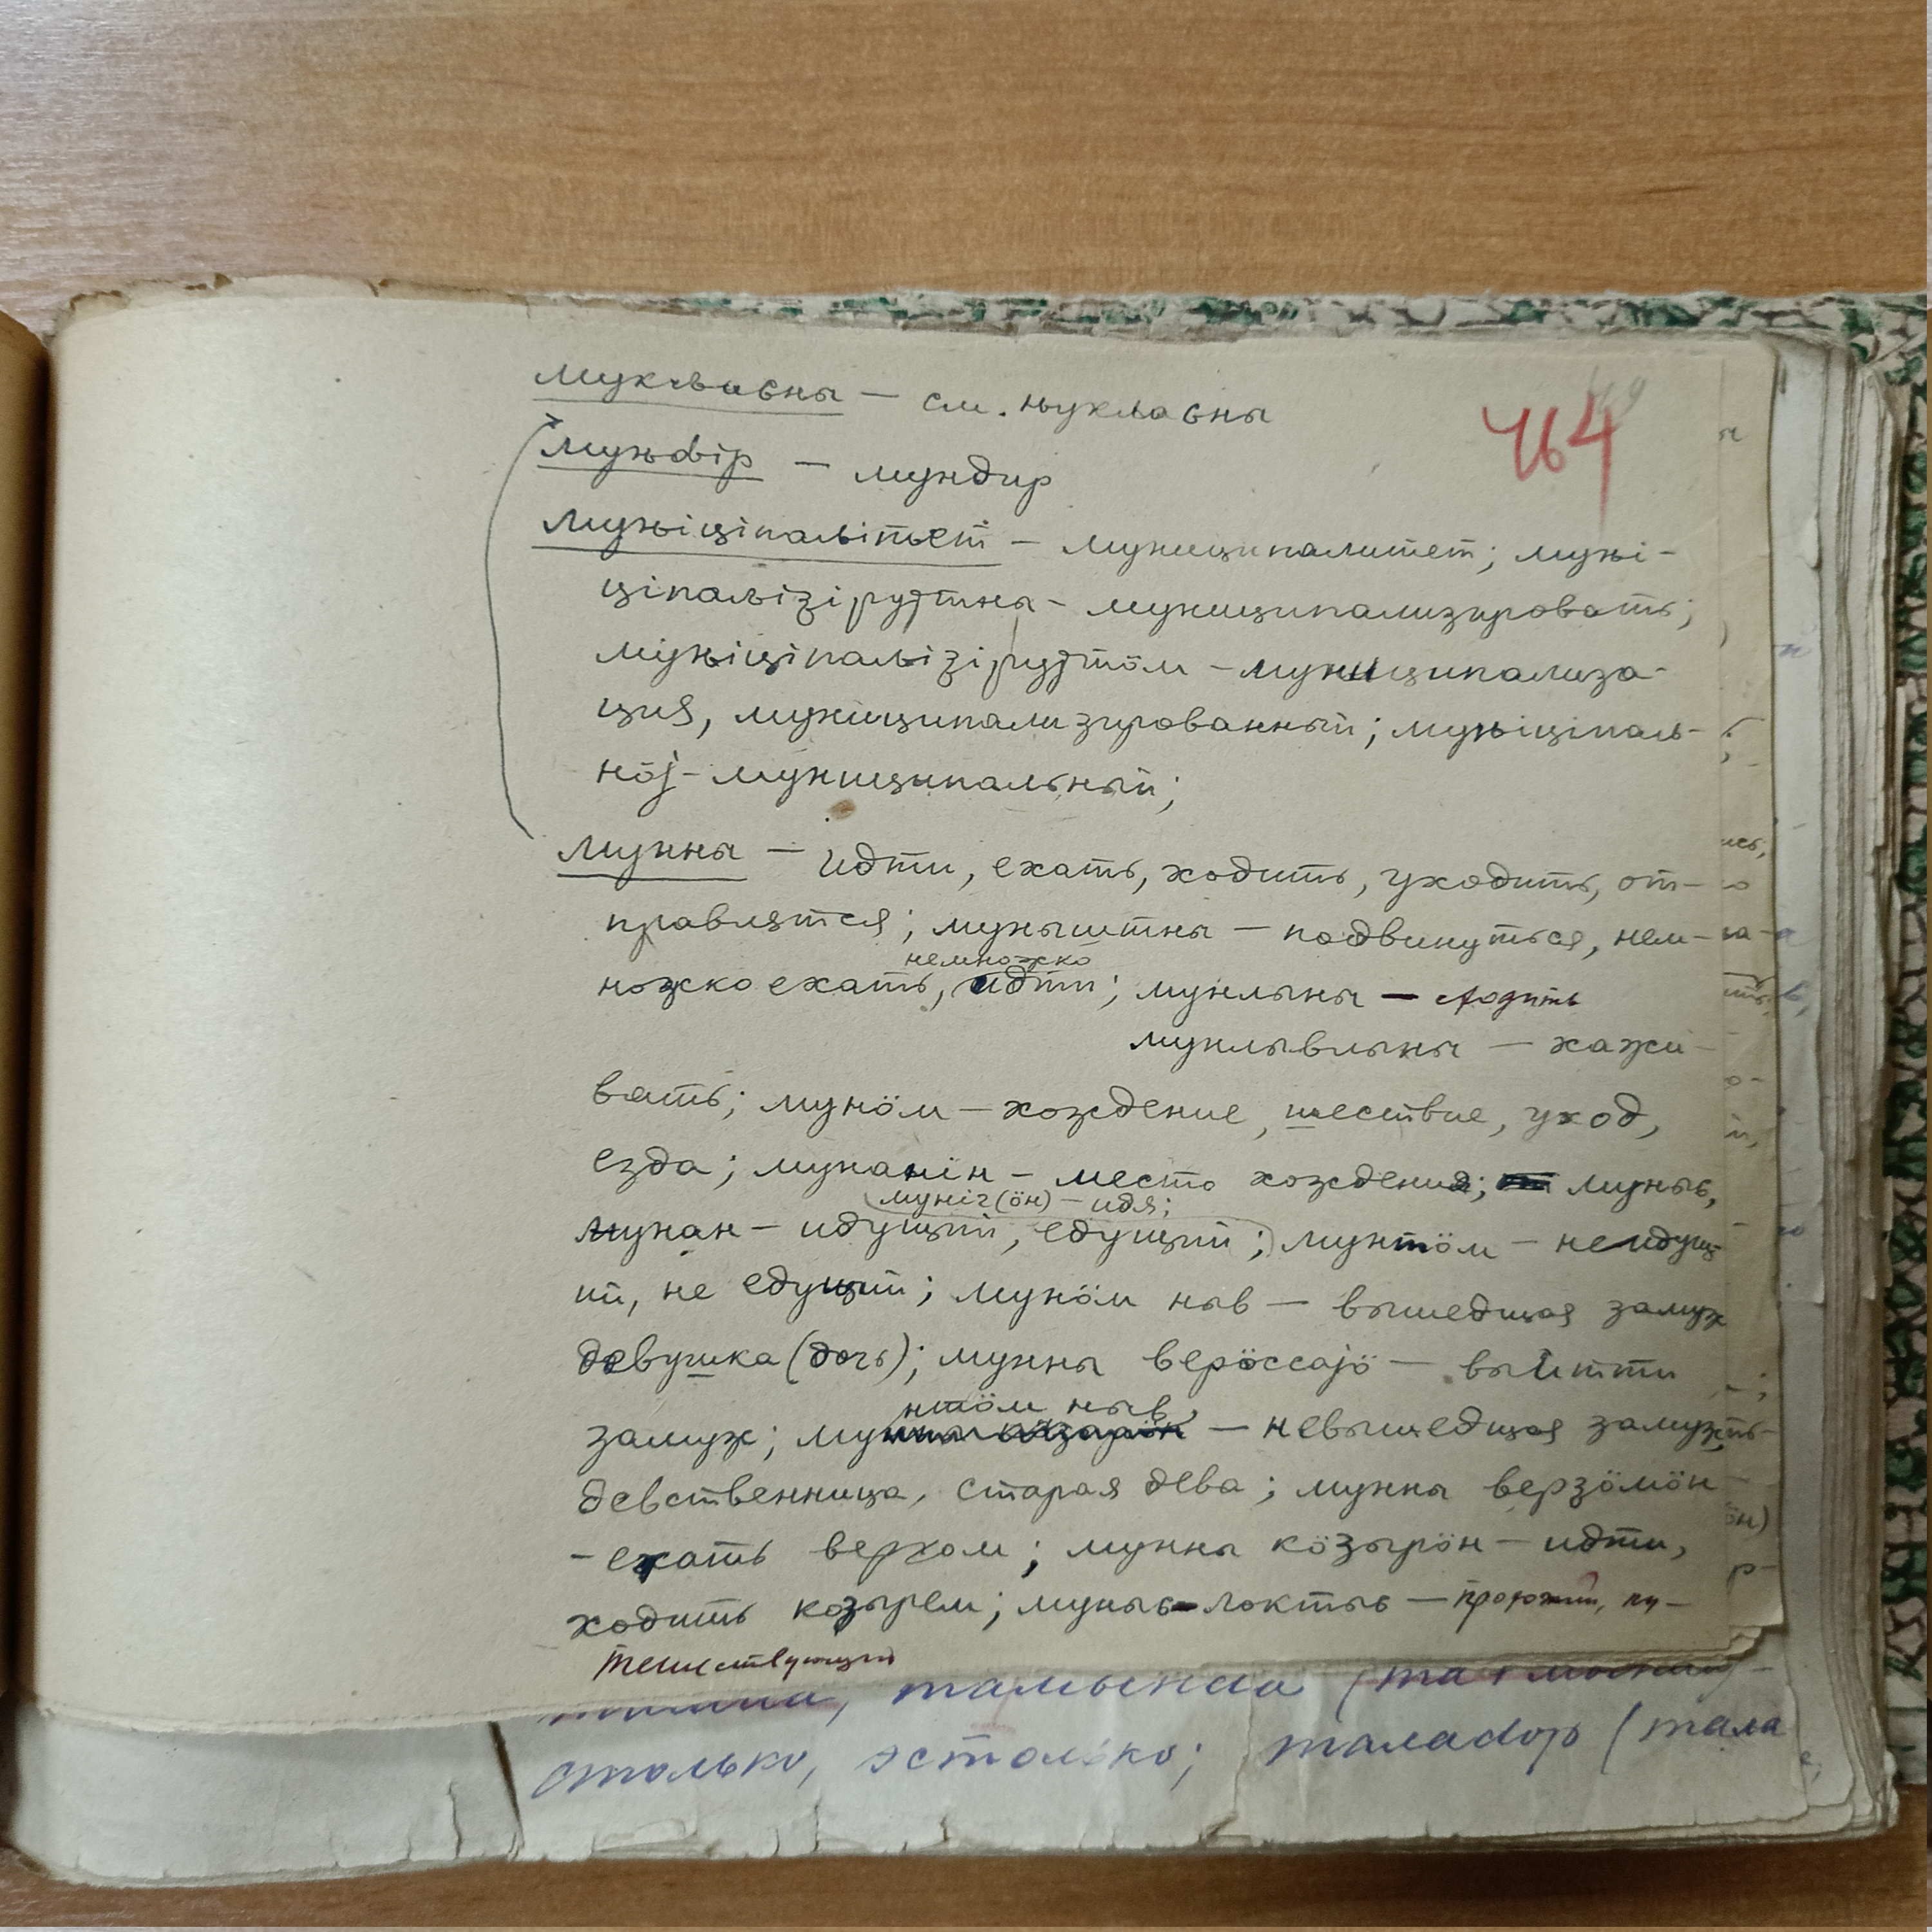 мукԉавны — см. њуклавны
464
муԋԁір — мундир
муԋіціпаԉіԏет — муниципалитет; муԋі-
ціпаԉізірујтны - муниципализировать;
муԋіціпаԉізірујтӧм - муниципализа-
ция, муниципализированный; муԋіціпаԉ-
нӧј - муниципальный;
мунны — идти, ехать, ходить, уходить, от-
правлятся; муныштны — подвинуться, нем-
немножко
ножко ехать, идти; мунлыны — сходить
мунлывлыны — хажи-
вать; мунӧм — хождение, шествие, уход,
езда; мунанін — место хождения; муныԍ,
муніг(ӧн) — идя;
мунан — идущий, едущий; мунтӧм — неидущ
ий, не едущий; мунӧм ныв — вышедшая замуж
девушка (дочь); мунны верӧссајӧ — выйтти
нтӧм ныв,
замуж; му — невышедшая замуж
девственница, старая дева; мунны верзӧмӧн
- ехать верхом; мунны кӧзырӧн — идти,
ходить козырем; муныԍ-локтыԍ — прохожий, пу-
тешествующий
столько, эстолько; таладор (тала